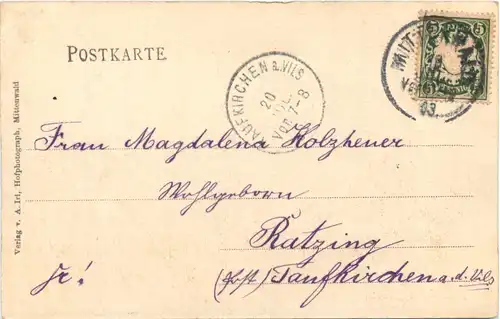 POSTKARTE.
TAUFKIRCHEN a. VILS
20
JUL.
Vor. 7-8
MITTENWALD
03.
5
Frau Magdalena Holzheuer
Wohlgeborn
Ratzing
fr! (Post) Taufkirchen a. d. Vils
Verlag v. A. Irl, Hofphotograph, Mittenwald